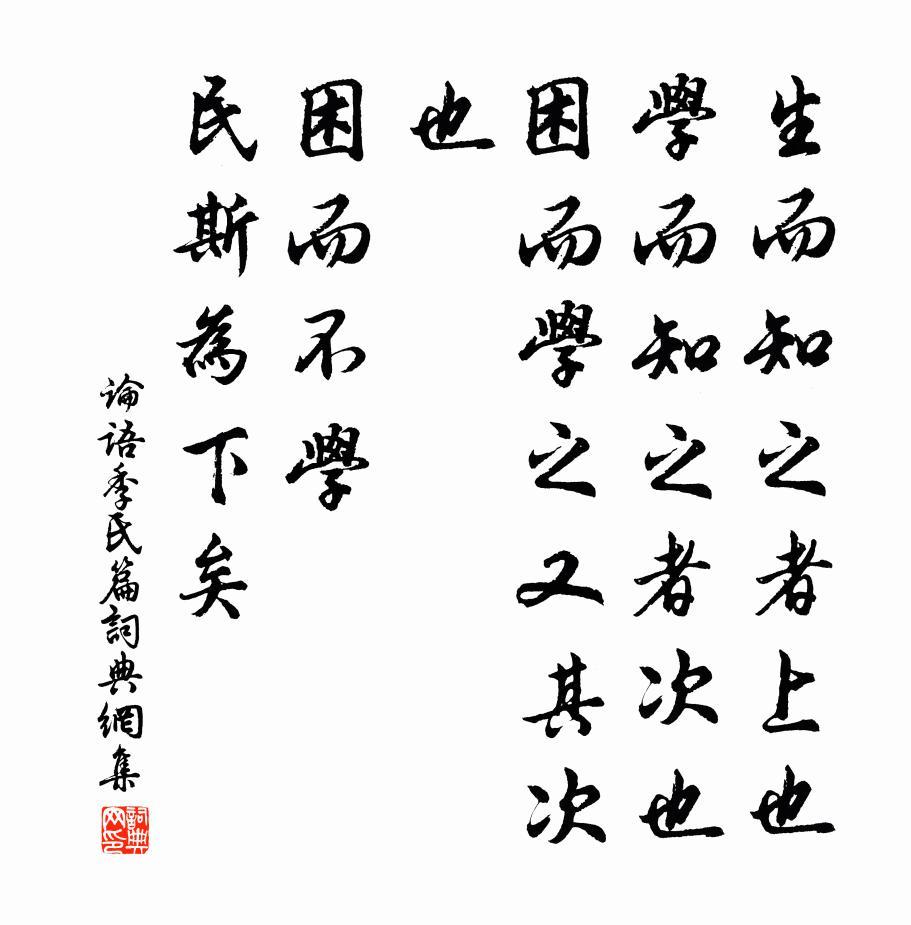 生而知之者上也
學而知之者次也
困而學之又其次
也
困而不學
民斯為下矣
論語季氏篇詞典網集
詞典
网印